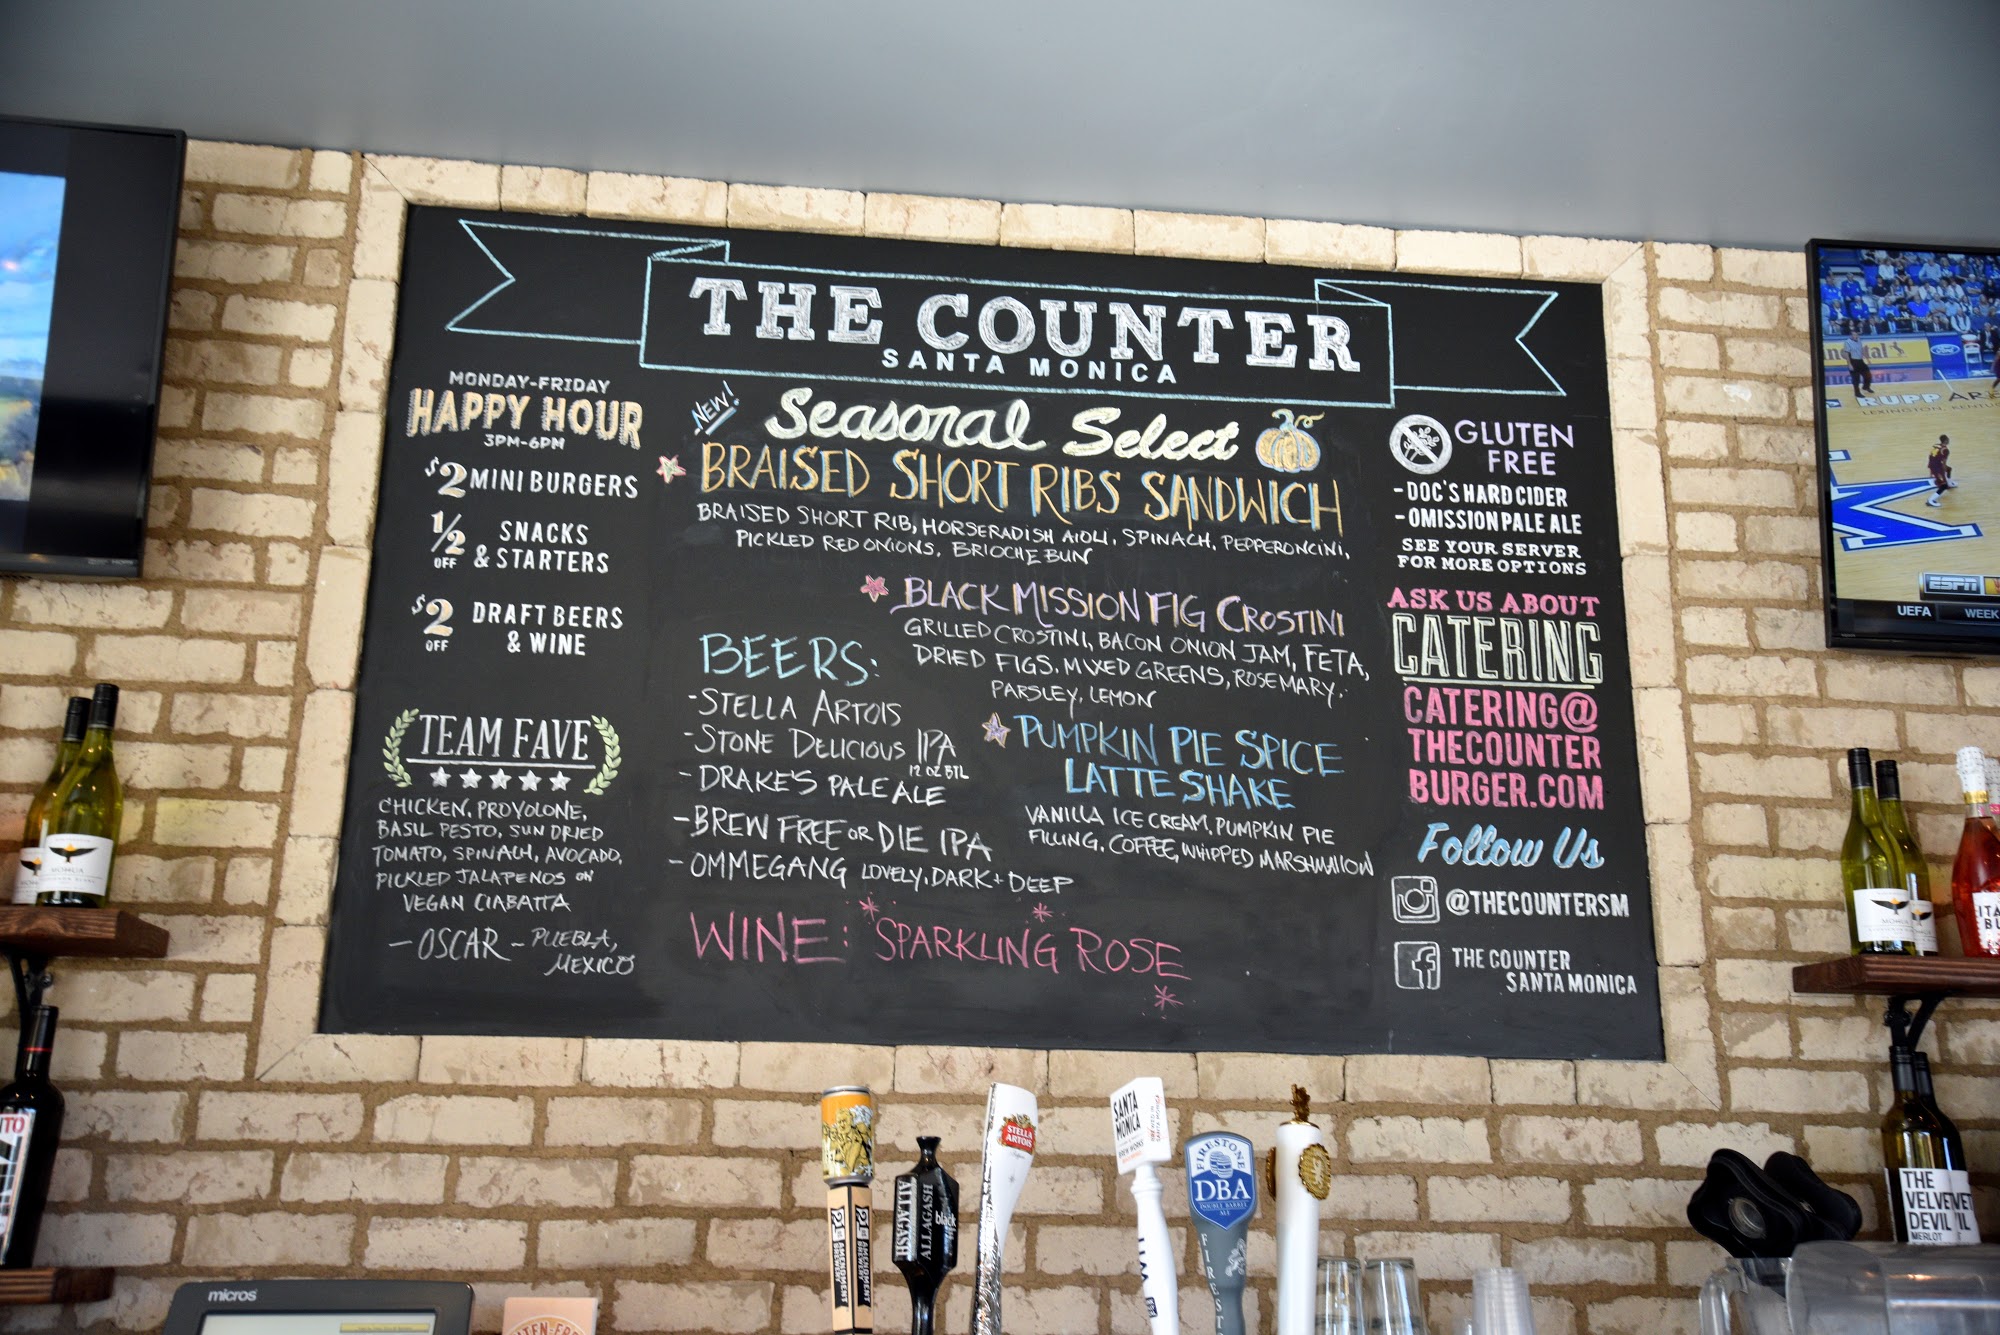 THE COUNTER
SANTA MONICA
MONDAY-FRIDAY
HAPPY HOUR
3PM-6PM
$2 MINI BURGERS
1/2 OFF SNACKS
& STARTERS
$2 OFF DRAFT BEERS
& WINE
TEAM FAVE
CHICKEN, PROVOLONE,
BASIL PESTO, SUN DRIED
TOMATO, SPINACH, AVOCADO,
PICKLED JALAPENOS ON
VEGAN CIABATTA
- OSCAR - PUEBLA,
MEXICO
NEW!
Seasonal Select
BRAISED SHORT RIBS SANDWICH
BRAISED SHORT RIB, HORSERADISH AIOLI, SPINACH, PEPPERONCINI,
PICKLED RED ONIONS, BRIOCHE BUN
BLACK MISSION FIG CROSTINI
GRILLED CROSTINI, BACON ONION JAM, FETA,
DRIED FIGS, MIXED GREENS, ROSEMARY,
PARSLEY, LEMON
PUMPKIN PIE SPICE
LATTE SHAKE
VANILLA ICE CREAM, PUMPKIN PIE
FILLING, COFFEE, WHIPPED MARSHMALLOW
BEERS:
-STELLA ARTOIS
-STONE DELICIOUS IPA
12 OZ BTL
-DRAKE'S PALE ALE
-BREW FREE OR DIE IPA
-OMMEGANG LOVELY, DARK + DEEP
WINE: SPARKLING ROSE
GLUTEN
FREE
-DOC'S HARD CIDER
-OMISSION PALE ALE
SEE YOUR SERVER
FOR MORE OPTIONS
ASK US ABOUT
CATERING
CATERING@
THECOUNTER
BURGER.COM
Follow Us
@THECOUNTERSM
THE COUNTER
SANTA MONICA
RUPP
LEXINGTON,
Ford
ESPN
UEFA WEEK
MOHUA
MOHUA
21ST AMENDMENT
BREWERY
ALLAGASH
ALLAGASH
black
STELLA
ARTOIS
SANTA
MONICA
BREW WORKS
BREWED IN
SANTA MONICA
FIRESTONE
DBA
DOUBLE BARREL
ALE
THE
VELVET
DEVIL
MERLOT
micros